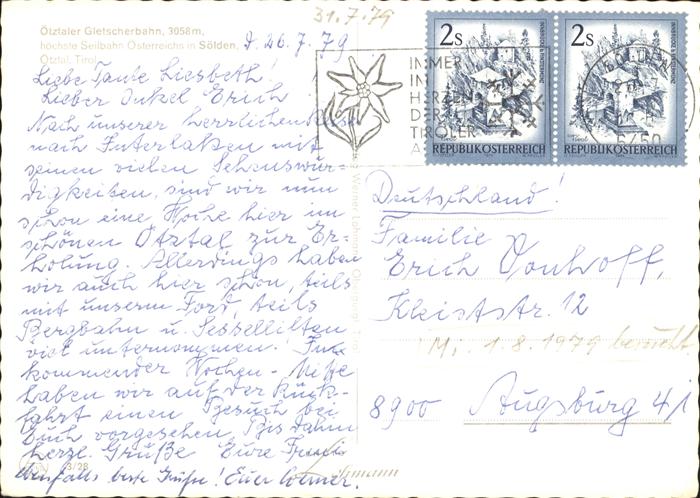 31.7.79
Ötztaler Gletscherbahn, 3058m,
höchste Seilbahn Österreichs in Sölden,
Ötztal, Tirol
d. 26.7.79
Liebe Tante Liesbeth!
Lieber Onkel Erich
Nach unserer herrlichen
nach Interlaken mit
seinen vielen Sehenswür-
digkeiten, sind wir nun
schon eine Woche hier im
schönen Ötztal zur Er-
holung. Allerdings haben
wir auch hier schon, teils
mit unserm Ford, teils
Bergbahn u. Sesselliften
viel unternommen.
kommender Wochen-Mitte
haben wir auf der Rück-
fahrt einen Besuch bei
Euch vorgesehen. Bis dahin
herzl. Grüße Eure
Ebenfalls beste Grüße! Euer Werner.
73/28
2s
2s
REPUBLIK ÖSTERREICH
REPUBLIK ÖSTERREICH
IMMER
IM
HERZEN
DER
TIROLER
6450
Deutschland!
Familie
Erich
Kleiststr. 12
M., 1.8.1979 besucht
8900 Augsburg 41